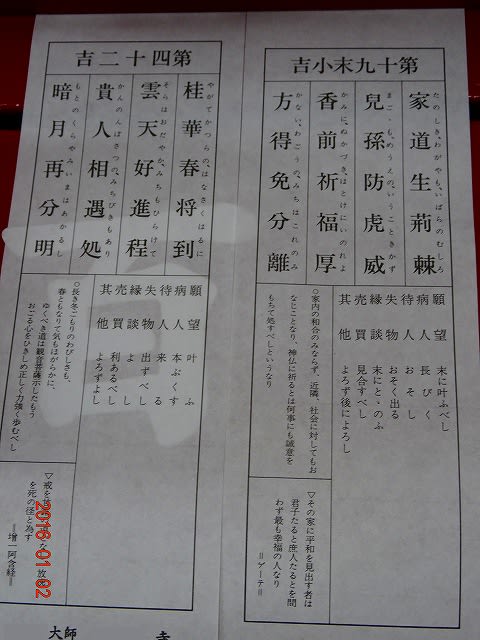 第十九末小吉
家道生荊棘
たのしき、わがやも、いばらのむしろ
兒孫防虎威
まごも、めうえの、いうこときかず
香前祈福厚
かみに、ぬかづき、ほとけにいのれよ
方得免分離
かない、わごうの、みちはこれのみ
願望 末に叶ふべし
病人 長びく
待人 おそし
失物 おそく出る
縁談 末にとゝのふ
売買 見合すべし
其他 よろず後によろし
○家内の和合のみならず、近隣、社会に対してもお
なじことなり、神仏に祈るとは何事にも誠意を
もちて処すべしというなり
▽その家に平和を見出す者は
君子たると庶人たるとを問
わず最も幸福の人なり
＝ゲーテ＝
第四十二吉
桂華春将到
やがてかつらの、はなさくはるに
雲天好進程
そらはおだやか、みちもひらけて
貴人相遇処
かんのんぼさつの、みちびきもあり
暗月再分明
もとのくらやみ、いまはあかるし
願望 叶ふ
病人 本ぷくす
待人 来る
失物 出ずべし
縁談 よし
売買 利あるべし
其他 よろずよし
○長き冬ごもりのわびしさも、
春ともなりて気もほがらかに、
ゆくべき道は観音菩薩示したもう
おごる心をひきしめ正しく力強く歩むべし
▽戒を
を死の径と為す
＝増一阿含経＝
2016.01.02
大師